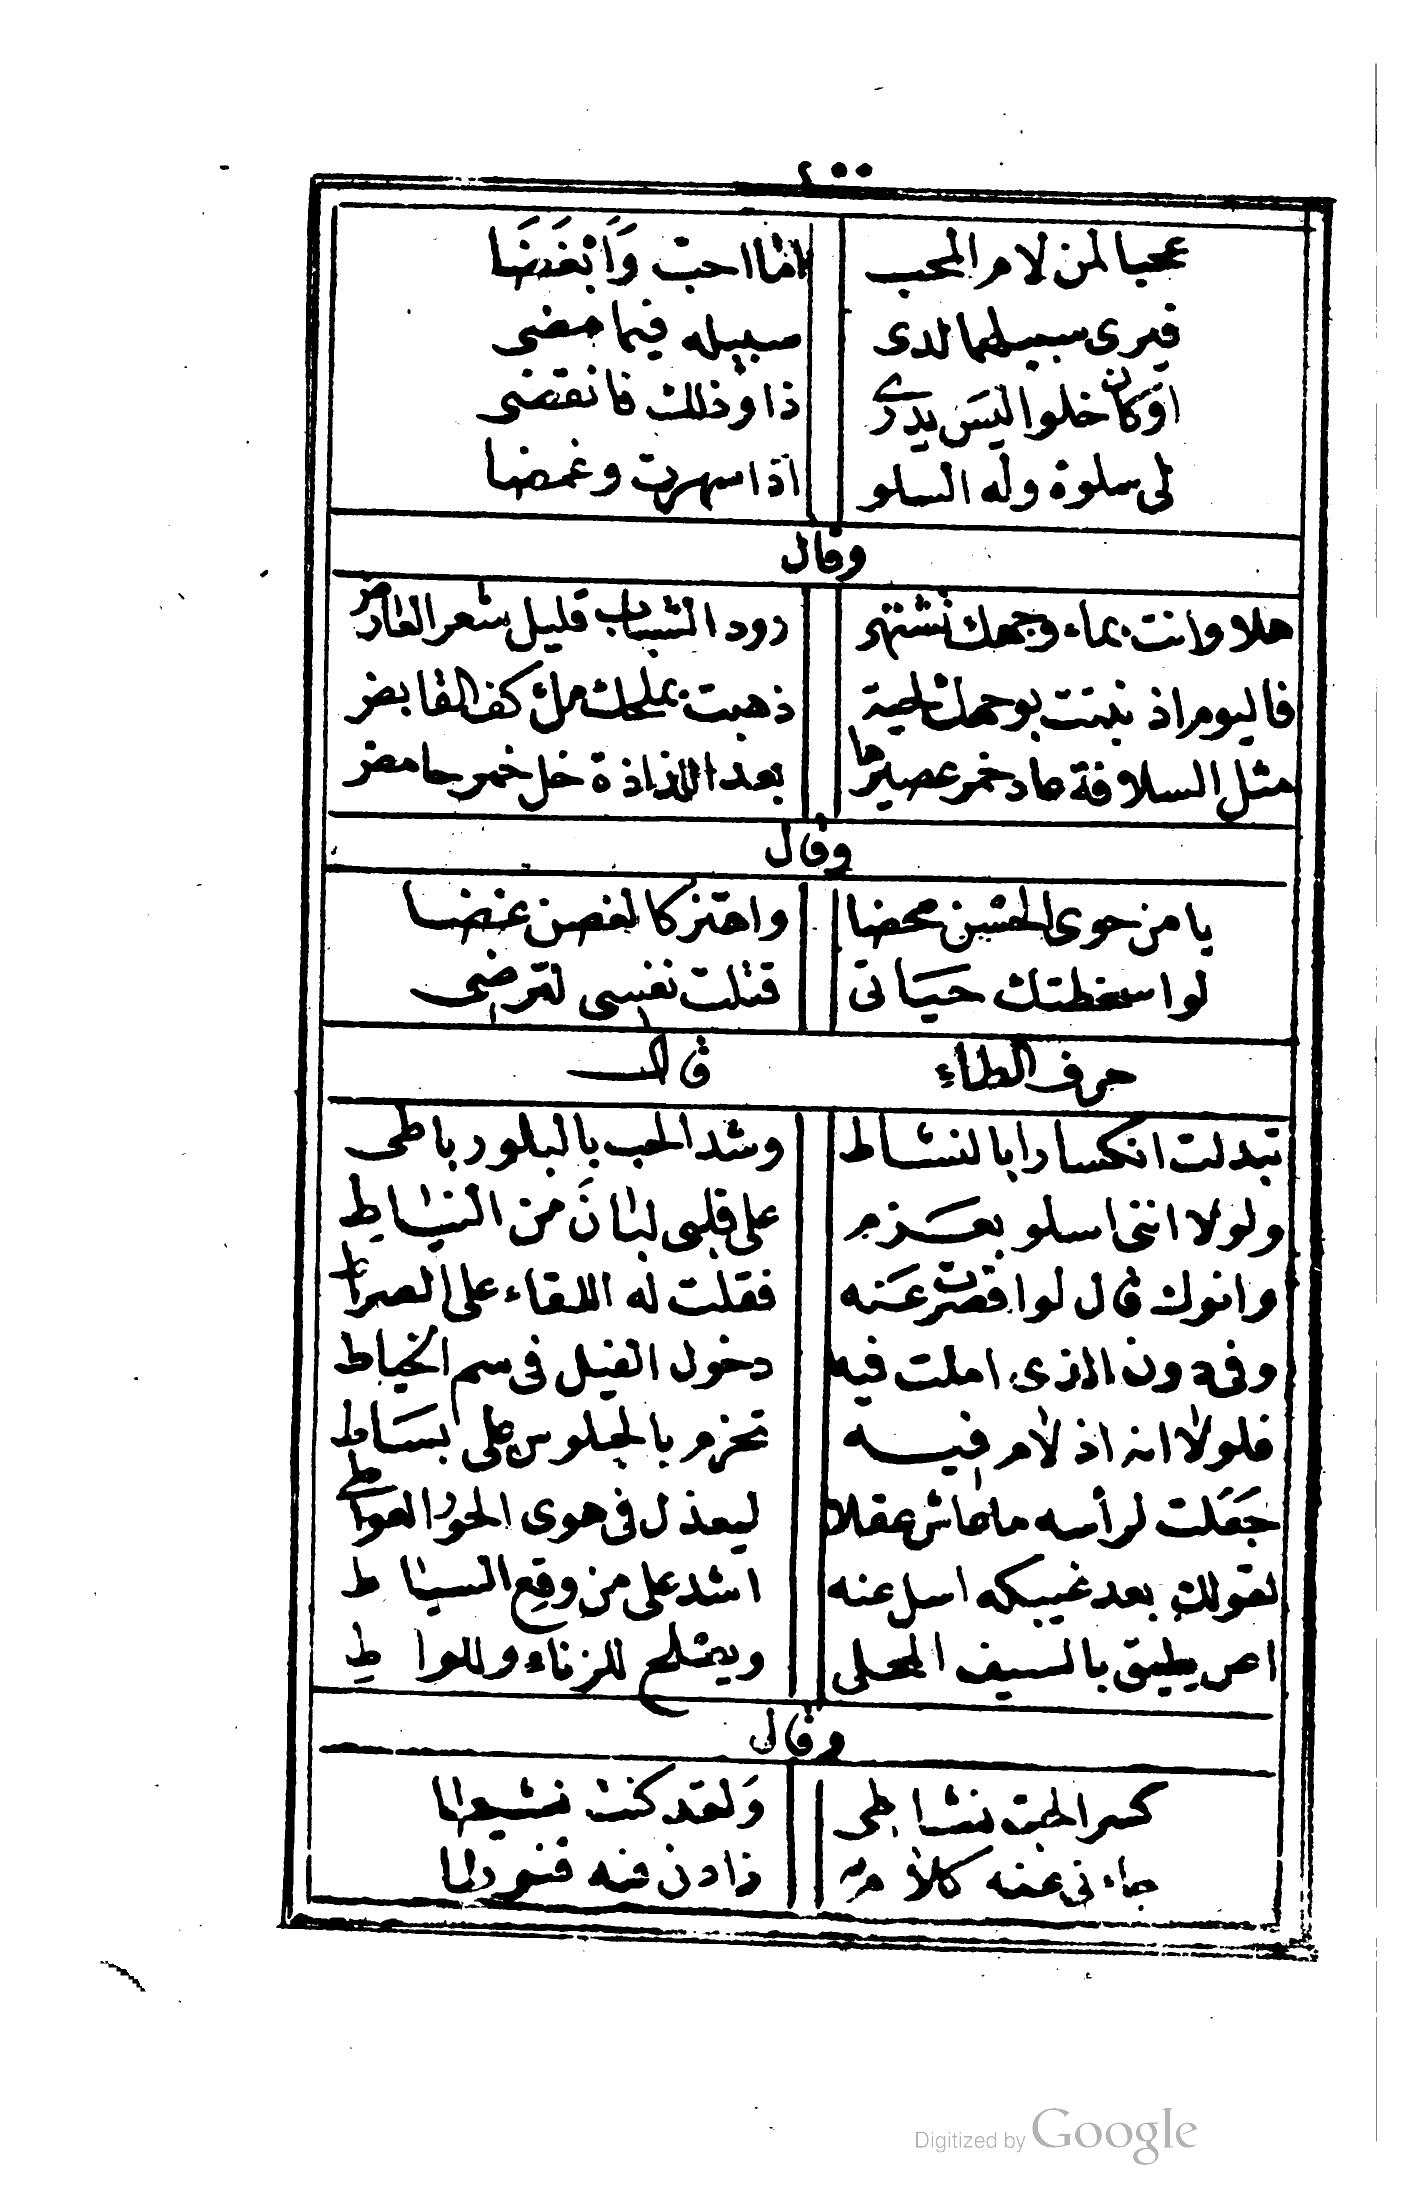 ٢٠٠
عجبا لمن لام المحب اما احب وَابْغَضَا
فيرى سبيلهما لدى سبيله فيما مضى
اوكان خلوا ليس يدرى ذا وذلك فانقضى
لى سلوة وله السلو اذا سهرت وغمضا
وقال
هلا وانت بماء وجهك تشتهى رود الشباب قليل شعر العارض
فاليوم اذ نبتت بوجهك لحية ذهبت بملحك ملء كف القابض
مثل السلافة عاد خمر عصيرها بعد اللذاذة خل خمر حامض
وقال
يا من حوى الحسن محضا واهتز كالغصن غضا
لو اسخطتك حياتى قتلت نفسى لترضى
حرف الطاء قال
تبدلت انكسارا بالنشاط وشد الحب بالبلور باطى
ولولا اننى اسلو بعزم على قلبى لبان من النياط
وانوك قال لو اقصرت عنه فقلت له اللقاء على الصراط
وفى دون الذى املت فيه دخول الفيل فى سم الخياط
فلولا انه اذ لام فيه تحزم بالجلوس على بساط
جَعَلت لرأسه ما عاش عقلا ليعذل فى هوى الحور العواطى
لقولك بعد غيبكه اسل عنه اشد على من وقع السياط
بالسيف المحلى ويصلح للزناء وللواط
وقال
كسر الحب نشاطى وَلقد كنت نشيطا
جاءنى عنه كلام زادنى فيه قنوطا
Digitized by Google